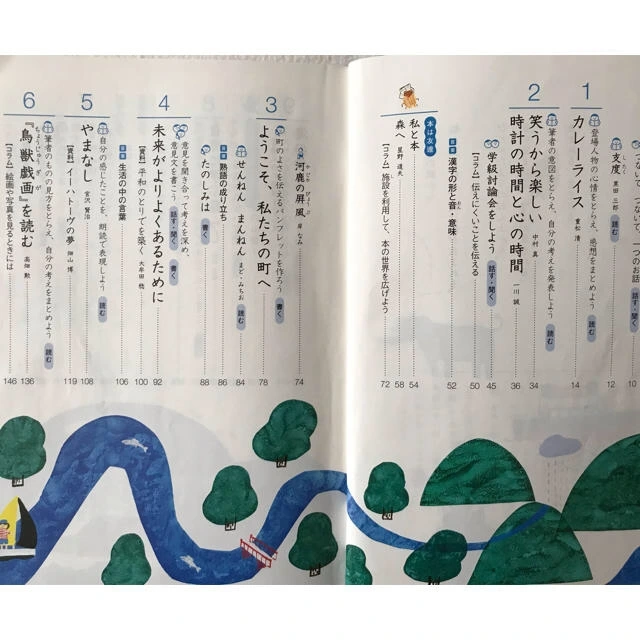 つないで、つないで、一つのお話
話す・聞く
10
支度
したく
黒田 三郎
読む
12
1
登場人物の心情をとらえ、感想をまとめよう
読む
カレーライス
重松 清
14
2
筆者の意図をとらえ、自分の考えを発表しよう
読む
笑うから楽しい
中村 真
34
時計の時間と心の時間
一川 誠
36
学級討論会をしよう
話す・聞く
45
［コラム］伝えにくいことを伝える
50
漢字の形と音・意味
おん
52
本は友達
私と本
54
森へ
星野 道夫
58
［コラム］施設を利用して、本の世界を広げよう
72
河鹿の屏風
かじか びょうぶ
岸 なみ
74
3
町のよさを伝えるパンフレットを作ろう
書く
ようこそ、私たちの町へ
78
せんねん まんねん
まど・みちお
読む
84
熟語の成り立ち
86
たのしみは
書く
88
4
意見を聞き合って考えを深め、
意見文を書こう
話す・聞く
書く
未来がよりよくあるために
92
［資料］平和のとりでを築く
大牟田 稔
100
生活の中の言葉
106
5
自分の感じたことを、朗読で表現しよう
読む
やまなし
宮沢 賢治
108
［資料］イーハトーヴの夢
畑山 博
119
6
筆者のものの見方をとらえ、自分の考えをまとめよう
読む
『鳥獣戯画』を読む
ちょうじゅうぎが
高畑 勲
136
［コラム］絵画や写真を見るときには
146